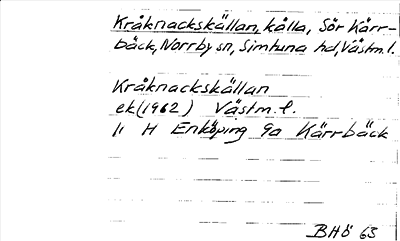 Kråknackskällan, källa, Sör Kärr-
bäck, Norrby sn, Simtuna hd, Västm. l.
Kråknackskällan
ek (1962) Västm. l.
11 H Enköping 9a Kärrbäck
BHÖ 63